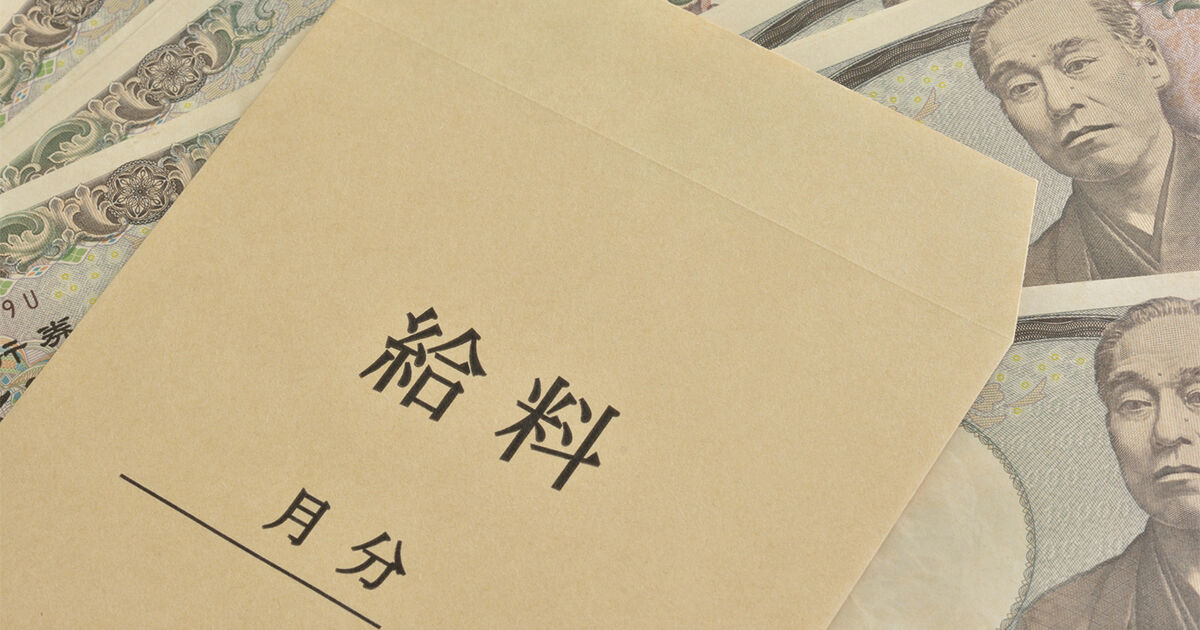 給料
月分
9U
行券